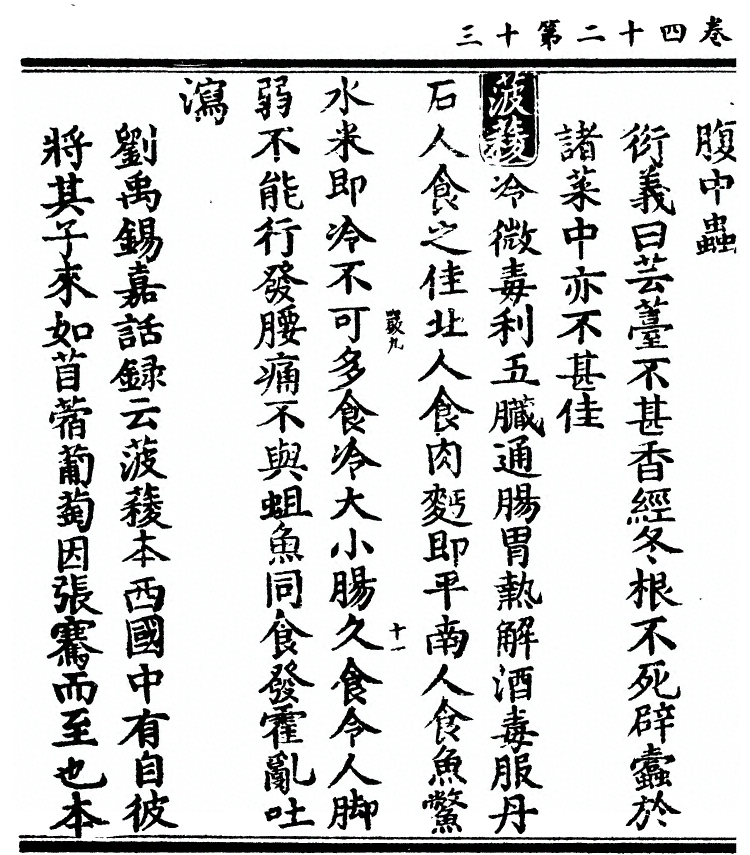 卷四十二第十三
腹中蟲
衍義曰芸薹不甚香經冬根不死辟蠹於
諸菜中亦不甚佳
菠薐冷微毒利五臟通腸胃熱解酒毒服丹
石人食之佳北人食肉麪即平南人食魚鱉
水米即冷不可多食冷大小腸久食令人脚
弱不能行發腰痛不與䱇魚同食發霍亂吐
瀉
劉禹錫嘉話録云菠薐本西國中有自彼
將其子來如苜蓿葡萄因張騫而至也本
十一